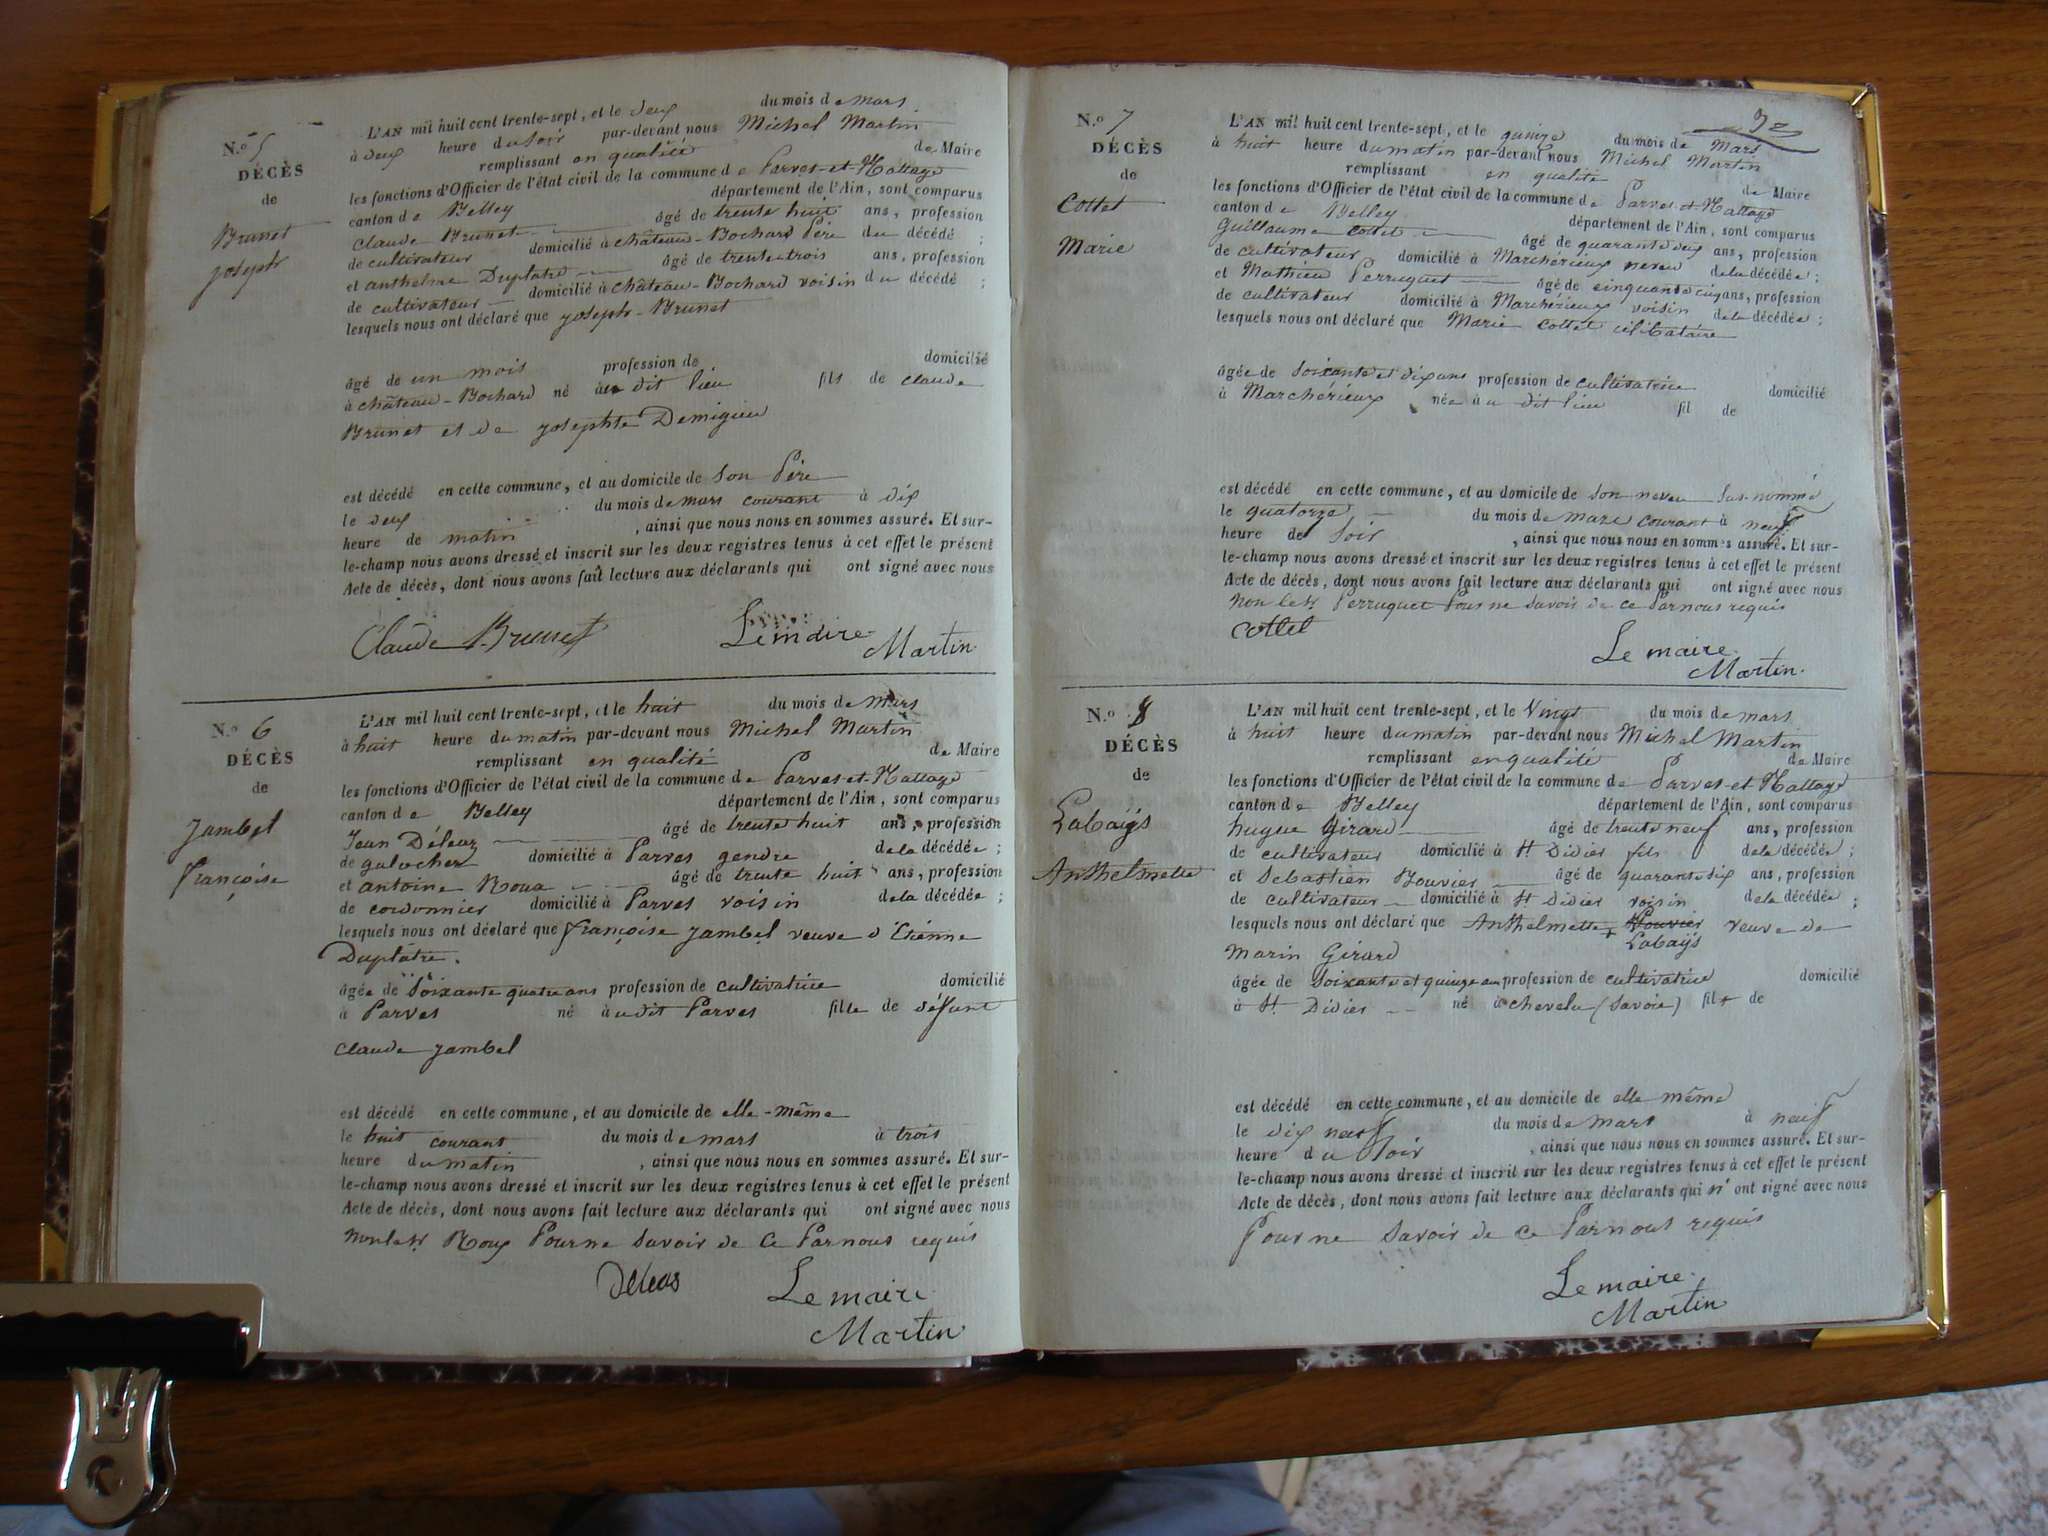 N.o 5
DÉCÈS
de
Brunet
joseph
L'AN mil huit cent trente-sept, et le deux du mois de mars
à deux heure du soir par-devant nous Michel Martin
remplissant en qualité de Maire
les fonctions d'Officier de l'état civil de la commune de Parves-et-Nattage
canton de Belley département de l'Ain, sont comparus
Claude Brunet âgé de trente huit ans, profession
de cultivateur domicilié à château-Bochard Père du décédé ;
et anthelme Duplatre âgé de trente trois ans, profession
de cultivateur domicilié à château-Bochard voisin du décédé ;
lesquels nous ont déclaré que joseph-Brunet
âgé de un mois profession de domicilié
à château-Bochard né au dit lieu fils de claude
Brunet et de josephte Demigieu
est décédé en cette commune, et au domicile de son Père
le deux du mois de mars courant à dix
heure de matin , ainsi que nous nous en sommes assuré. Et sur-
le-champ nous avons dressé et inscrit sur les deux registres tenus à cet effet le présent
Acte de décès, dont nous avons fait lecture aux déclarants qui ont signé avec nous
Claude Brunet Le maire
Martin
N.o 6
DÉCÈS
de
Jambel
françoise
L'AN mil huit cent trente-sept, et le huit du mois de mars
à huit heure du matin par-devant nous Michel Martin
remplissant en qualité de Maire
les fonctions d'Officier de l'état civil de la commune de Parves-et-Nattage
canton de Belley département de l'Ain, sont comparus
Jean Déléaz âgé de trente huit ans, profession
de galocher domicilié à Parves gendre de la décédée ;
et antoine Roux âgé de trente huit ans, profession
de cordonnier domicilié à Parves voisin de la décédée ;
lesquels nous ont déclaré que françoise jambel veuve d'Etienne
Duplâtre.
âgée de soixante quatre ans profession de cultivatrice domicilié
à Parves né au dit Parves fille de défunt
claude jambel
est décédé en cette commune, et au domicile de elle-même
le huit courant du mois de mars à trois
heure du matin , ainsi que nous nous en sommes assuré. Et sur-
le-champ nous avons dressé et inscrit sur les deux registres tenus à cet effet le présent
Acte de décès, dont nous avons fait lecture aux déclarants qui ont signé avec nous
non le st Roux Pour ne savoir de ce Par nous requis
Deleas Le maire
Martin
92
N.o 7
DÉCÈS
de
Cottet
Marie
L'AN mil huit cent trente-sept, et le quinze du mois de Mars
à huit heure du matin par-devant nous Michel Martin
remplissant en qualité de Maire
les fonctions d'Officier de l'état civil de la commune de Parves-et-Nattage
canton de Belley département de l'Ain, sont comparus
Guillaume Cottet âgé de quarante deux ans, profession
de cultivateur domicilié à Marchérieux neveu de la décédée ;
et Mathieu Perruquet âgé de cinquante cinq ans, profession
de cultivateur domicilié à Marchérieux voisin de la décédée ;
lesquels nous ont déclaré que Marie Cottet célibataire
âgée de soixante et dix ans profession de cultivatrice domicilié
à Marchérieux née au dit lieu fil de
est décédé en cette commune, et au domicile de son neveu sus-nommé
le quatorze du mois de mars courant à neuf
heure de soir , ainsi que nous nous en sommes assuré. Et sur-
le-champ nous avons dressé et inscrit sur les deux registres tenus à cet effet le présent
Acte de décès, dont nous avons fait lecture aux déclarants qui ont signé avec nous
non le st Perruquet Pour ne savoir de ce Par nous requis
Cottet
Le maire.
Martin.
N.o 8
DÉCÈS
de
Labaÿs
Anthelmette
L'AN mil huit cent trente-sept, et le Vingt du mois de mars
à huit heure du matin par-devant nous Michel Martin
remplissant en qualité de Maire
les fonctions d'Officier de l'état civil de la commune de Parves-et-Nattage
canton de Belley département de l'Ain, sont comparus
hugue Girard âgé de trente neuf ans, profession
de cultivateur domicilié à St Didier fils de la décédée ;
et Sebastien Bouvier âgé de quarante six ans, profession
de cultivateur domicilié à St Didier voisin de la décédée ;
lesquels nous ont déclaré que Anthelmette + Bouvier veuve de
Labaÿs
Marin Girard
âgée de soixante et quinze an profession de cultivatrice domicilié
à St Didier né à chevelu (Savoie) fil de
est décédé en cette commune, et au domicile de elle même
le dix neuf du mois de mars à neuf
heure du soir , ainsi que nous nous en sommes assuré. Et sur-
le-champ nous avons dressé et inscrit sur les deux registres tenus à cet effet le présent
Acte de décès, dont nous avons fait lecture aux déclarants qui n'ont signé avec nous
Pour ne savoir de ce Par nous requis
Le maire.
Martin